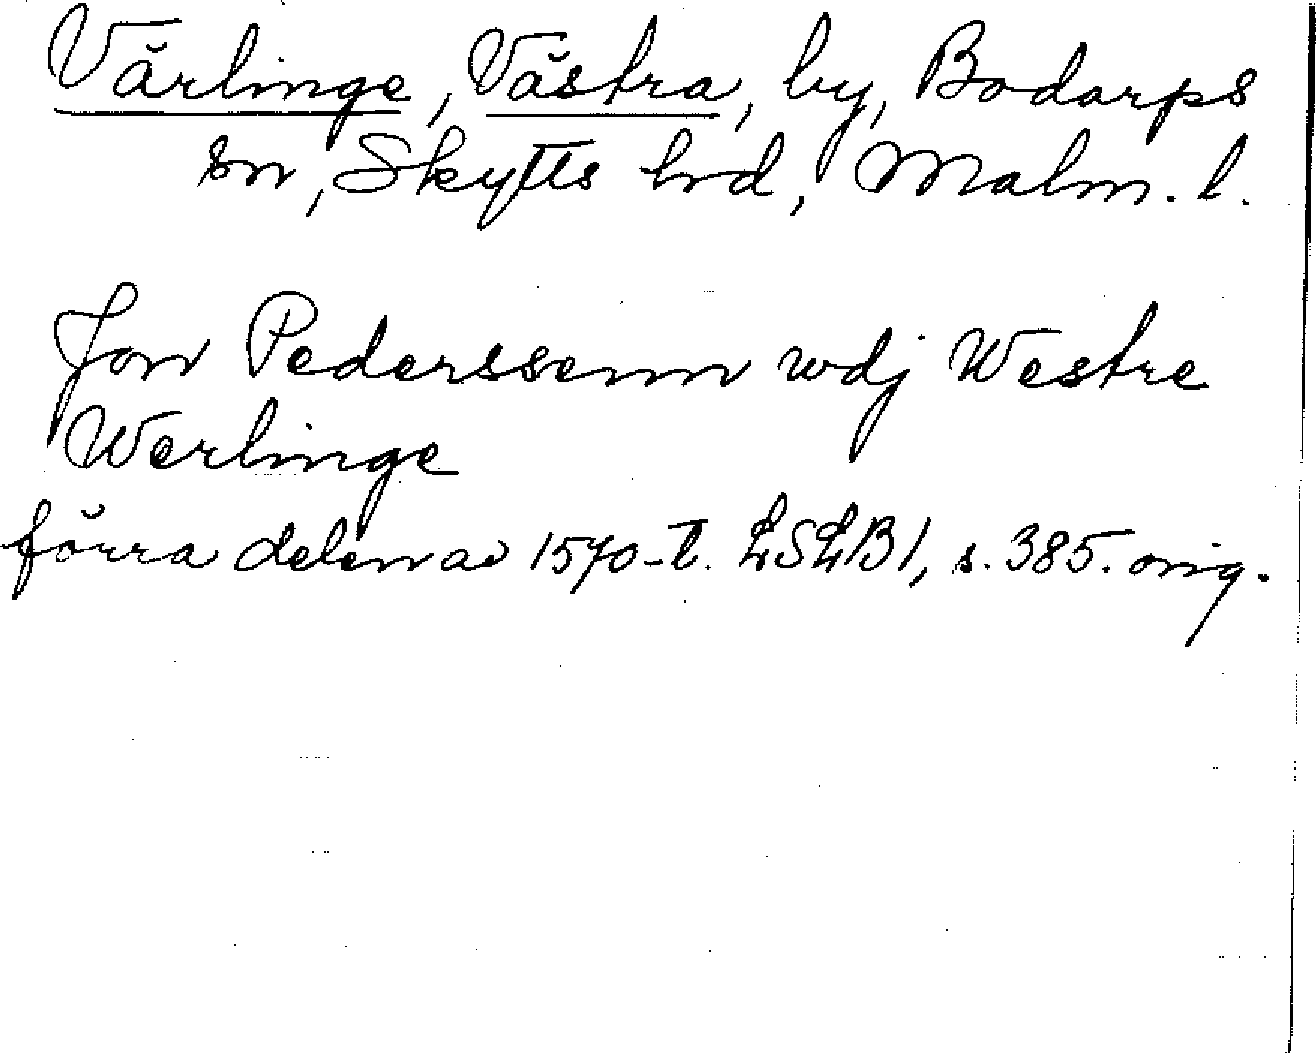 Värlinge, Västra, by, Bodarps
sn, Skytts hrd, Malm. l.
Jon Pederssenn wdj Westre
Werlinge
förra delen av 1570-t. LSLB1, s. 385. orig.